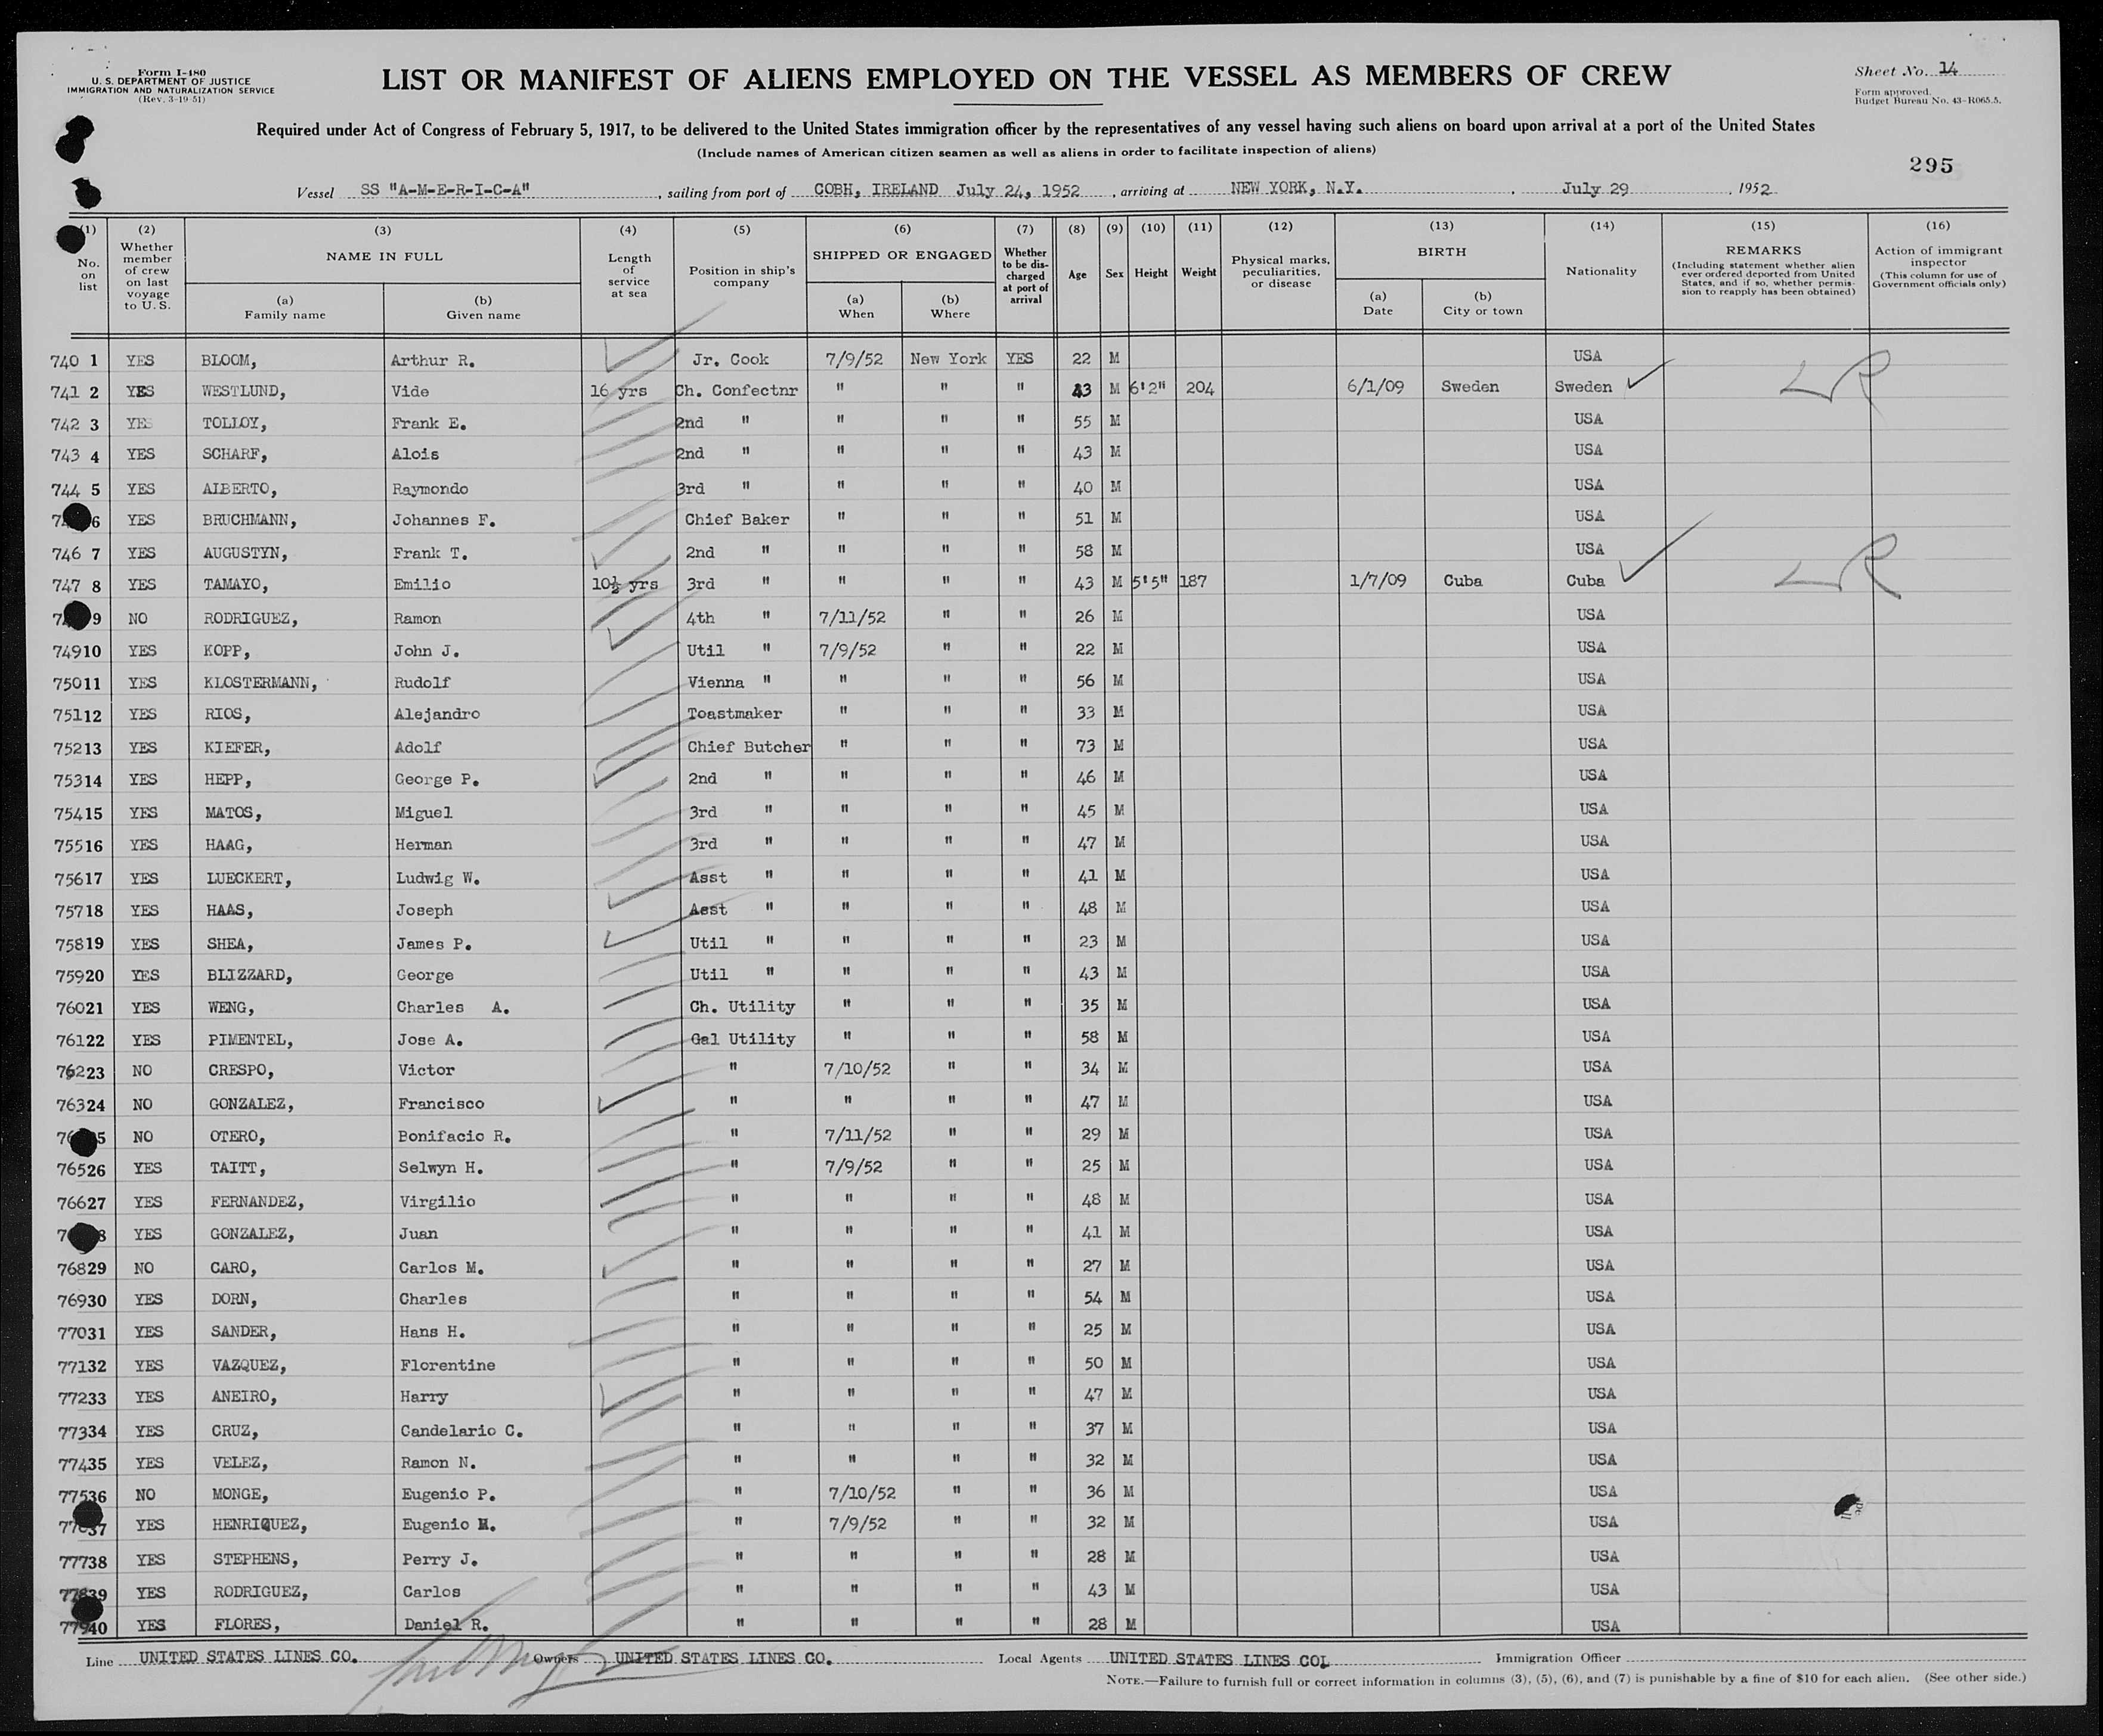 Form I-480
U. S. DEPARTMENT OF JUSTICE
IMMIGRATION AND NATURALIZATION SERVICE
(Rev. 3-19-51)
LIST OR MANIFEST OF ALIENS EMPLOYED ON THE VESSEL AS MEMBERS OF CREW
Sheet No. 14
Form approved.
Budget Bureau No. 43-R065.5.
Required under Act of Congress of February 5, 1917, to be delivered to the United States immigration officer by the representatives of any vessel having such aliens on board upon arrival at a port of the United States
(Include names of American citizen seamen as well as aliens in order to facilitate inspection of aliens)
295
Vessel SS "A-M-E-R-I-C-A", sailing from port of COBH, IRELAND July 24, 1952, arriving at NEW YORK, N.Y., July 29, 1952
(1) No. on list
(2) Whether member of crew on last voyage to U. S.
(3) NAME IN FULL
(a) Family name
(b) Given name
(4) Length of service at sea
(5) Position in ship's company
(6) SHIPPED OR ENGAGED
(a) When
(b) Where
(7) Whether to be discharged at port of arrival
(8) Age
(9) Sex
(10) Height
(11) Weight
(12) Physical marks, peculiarities, or disease
(13) BIRTH
(a) Date
(b) City or town
(14) Nationality
(15) REMARKS
(Including statement whether alien ever ordered deported from United States, and if so, whether permission to reapply has been obtained)
(16) Action of immigrant inspector
(This column for use of Government officials only)
740 1 YES BLOOM, Arthur R. Jr. Cook 7/9/52 New York YES 22 M USA
741 2 YES WESTLUND, Vide 16 yrs Ch. Confectnr " " " 43 M 6'2" 204 6/1/09 Sweden Sweden LR
742 3 YES TOLLOY, Frank E. 2nd " " " " 55 M USA
743 4 YES SCHARF, Alois 2nd " " " " 43 M USA
744 5 YES ALBERTO, Raymondo 3rd " " " " 40 M USA
6 YES BRUCHMANN, Johannes F. Chief Baker " " " 51 M USA
746 7 YES AUGUSTYN, Frank T. 2nd " " " " 58 M USA
747 8 YES TAMAYO, Emilio 10½ yrs 3rd " " " " 43 M 5'5" 187 1/7/09 Cuba Cuba LR
9 NO RODRIGUEZ, Ramon 4th " 7/11/52 " " 26 M USA
749 10 YES KOPP, John J. Util " 7/9/52 " " 22 M USA
750 11 YES KLOSTERMANN, Rudolf Vienna " " " " 56 M USA
751 12 YES RIOS, Alejandro Toastmaker " " " 33 M USA
752 13 YES KIEFER, Adolf Chief Butcher " " " 73 M USA
753 14 YES HEPP, George P. 2nd " " " " 46 M USA
754 15 YES MATOS, Miguel 3rd " " " " 45 M USA
755 16 YES HAAG, Herman 3rd " " " " 47 M USA
756 17 YES LUECKERT, Ludwig W. Asst " " " " 41 M USA
757 18 YES HAAS, Joseph Asst " " " " 48 M USA
758 19 YES SHEA, James P. Util " " " " 23 M USA
759 20 YES BLIZZARD, George Util " " " " 43 M USA
760 21 YES WENG, Charles A. Ch. Utility " " " 35 M USA
761 22 YES PIMENTEL, Jose A. Gal Utility " " " 58 M USA
762 23 NO CRESPO, Victor " 7/10/52 " " 34 M USA
763 24 NO GONZALEZ, Francisco " " " " 47 M USA
5 NO OTERO, Bonifacio R. " 7/11/52 " " 29 M USA
765 26 YES TAITT, Selwyn H. " 7/9/52 " " 25 M USA
766 27 YES FERNANDEZ, Virgilio " " " " 48 M USA
8 YES GONZALEZ, Juan " " " " 41 M USA
768 29 NO CARO, Carlos M. " " " " 27 M USA
769 30 YES DORN, Charles " " " " 54 M USA
770 31 YES SANDER, Hans H. " " " " 25 M USA
771 32 YES VAZQUEZ, Florentine " " " " 50 M USA
772 33 YES ANEIRO, Harry " " " " 47 M USA
773 34 YES CRUZ, Candelario C. " " " " 37 M USA
774 35 YES VELEZ, Ramon N. " " " " 32 M USA
775 36 NO MONGE, Eugenio P. " 7/10/52 " " 36 M USA
37 YES HENRIQUEZ, Eugenio M. " 7/9/52 " " 32 M USA
777 38 YES STEPHENS, Perry J. " " " " 28 M USA
778 39 YES RODRIGUEZ, Carlos " " " " 43 M USA
779 40 YES FLORES, Daniel R. " " " " 28 M USA
Line UNITED STATES LINES CO. Owners UNITED STATES LINES CO. Local Agents UNITED STATES LINES COL Immigration Officer
NOTE.—Failure to furnish full or correct information in columns (3), (5), (6), and (7) is punishable by a fine of $10 for each alien. (See other side.)